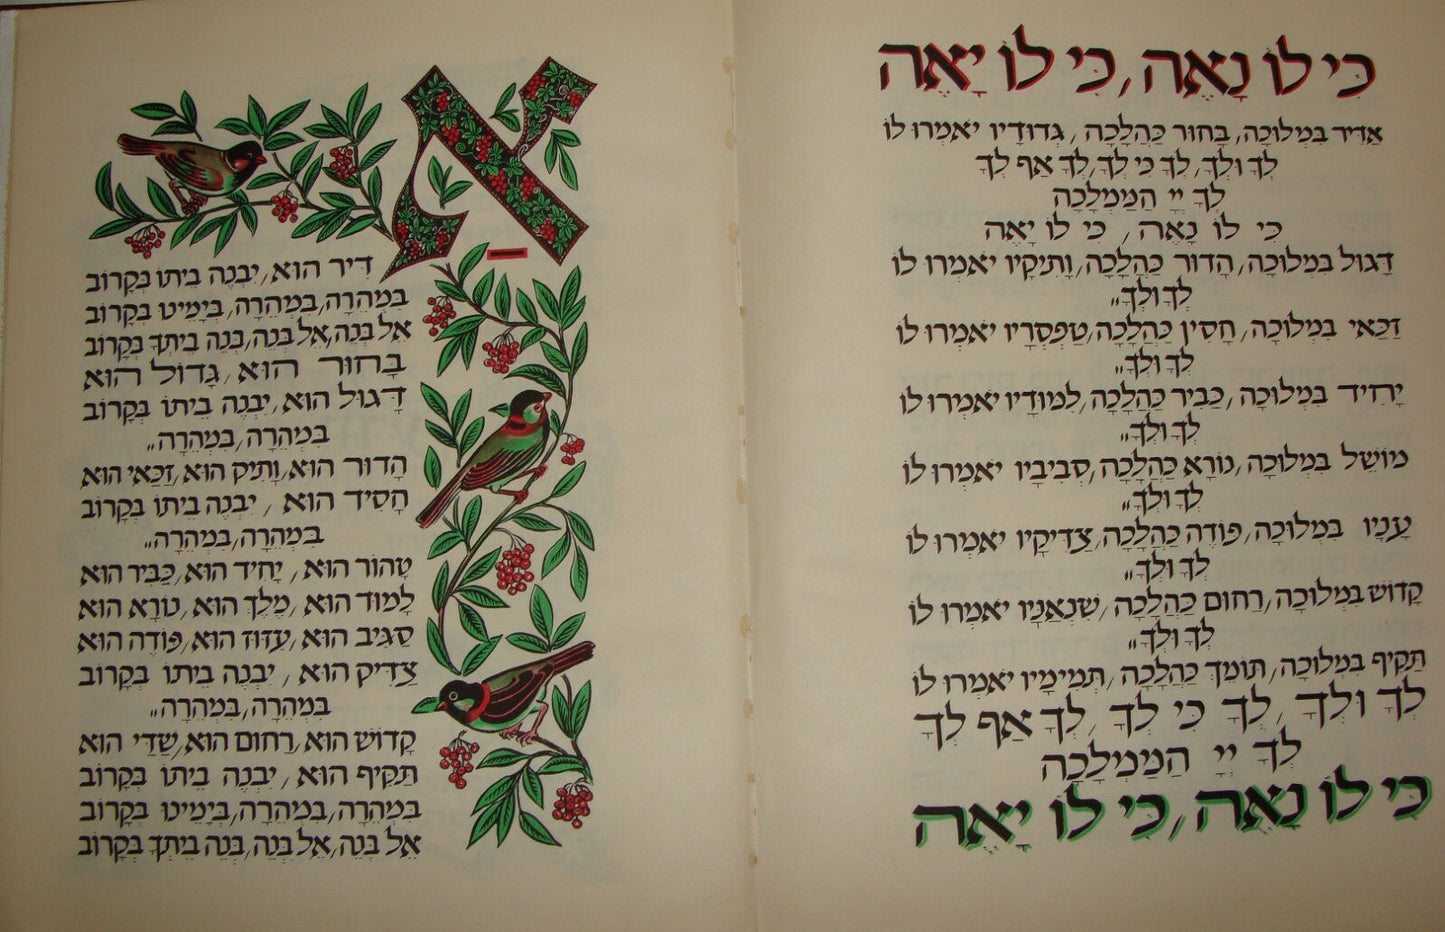 כִּי לוֹ נָאֶה, כִּי לוֹ יָאֶה
אַדִּיר בִּמְלוּכָה, בָּחוּר כַּהֲלָכָה, גְּדוּדָיו יֹאמְרוּ לוֹ
לְךָ וּלְךָ, לְךָ כִּי לְךָ, לְךָ אַף לְךָ
לְךָ יְיָ הַמַּמְלָכָה
כִּי לוֹ נָאֶה, כִּי לוֹ יָאֶה
דָּגוּל בִּמְלוּכָה, הָדוּר כַּהֲלָכָה, וָתִיקָיו יֹאמְרוּ לוֹ
לְךָ וּלְךָ"
זַכַּאי בִּמְלוּכָה, חָסִין כַּהֲלָכָה, טַפְסְרָיו יֹאמְרוּ לוֹ
לְךָ וּלְךָ"
יָחִיד בִּמְלוּכָה, כַּבִּיר כַּהֲלָכָה, לִמּוּדָיו יֹאמְרוּ לוֹ
לְךָ וּלְךָ"
מוֹשֵׁל בִּמְלוּכָה, נוֹרָא כַּהֲלָכָה, סְבִיבָיו יֹאמְרוּ לוֹ
לְךָ וּלְךָ"
עָנָיו בִּמְלוּכָה, פּוֹדֶה כַּהֲלָכָה, צַדִּיקָיו יֹאמְרוּ לוֹ
לְךָ וּלְךָ"
קָדוֹשׁ בִּמְלוּכָה, רַחוּם כַּהֲלָכָה, שִׁנְאַנָּיו יֹאמְרוּ לוֹ
לְךָ וּלְךָ"
תַּקִּיף בִּמְלוּכָה, תּוֹמֵךְ כַּהֲלָכָה, תְּמִימָיו יֹאמְרוּ לוֹ
לְךָ וּלְךָ, לְךָ כִּי לְךָ, לְךָ אַף לְךָ
לְךָ יְיָ הַמַּמְלָכָה
כִּי לוֹ נָאֶה, כִּי לוֹ יָאֶה
אַדִּיר הוּא, יִבְנֶה בֵיתוֹ בְּקָרוֹב
בִּמְהֵרָה, בִּמְהֵרָה, בְּיָמֵינוּ בְּקָרוֹב
אֵל בְּנֵה, אֵל בְּנֵה, בְּנֵה בֵיתְךָ בְּקָרוֹב
בָּחוּר הוּא, גָּדוֹל הוּא
דָּגוּל הוּא, יִבְנֶה בֵיתוֹ בְּקָרוֹב
בִּמְהֵרָה, בִּמְהֵרָה"
הָדוּר הוּא, וָתִיק הוּא, זַכַּאי הוּא
חָסִיד הוּא, יִבְנֶה בֵיתוֹ בְּקָרוֹב
בִּמְהֵרָה, בִּמְהֵרָה"
טָהוֹר הוּא, יָחִיד הוּא, כַּבִּיר הוּא
לָמוּד הוּא, מֶלֶךְ הוּא, נוֹרָא הוּא
סַגִּיב הוּא, עִזּוּז הוּא, פּוֹדֶה הוּא
צַדִּיק הוּא, יִבְנֶה בֵיתוֹ בְּקָרוֹב
בִּמְהֵרָה, בִּמְהֵרָה"
קָדוֹשׁ הוּא, רַחוּם הוּא, שַׁדַּי הוּא
תַּקִּיף הוּא, יִבְנֶה בֵיתוֹ בְּקָרוֹב
בִּמְהֵרָה, בִּמְהֵרָה, בְּיָמֵינוּ בְּקָרוֹב
אֵל בְּנֵה, אֵל בְּנֵה, בְּנֵה בֵיתְךָ בְּקָרוֹב